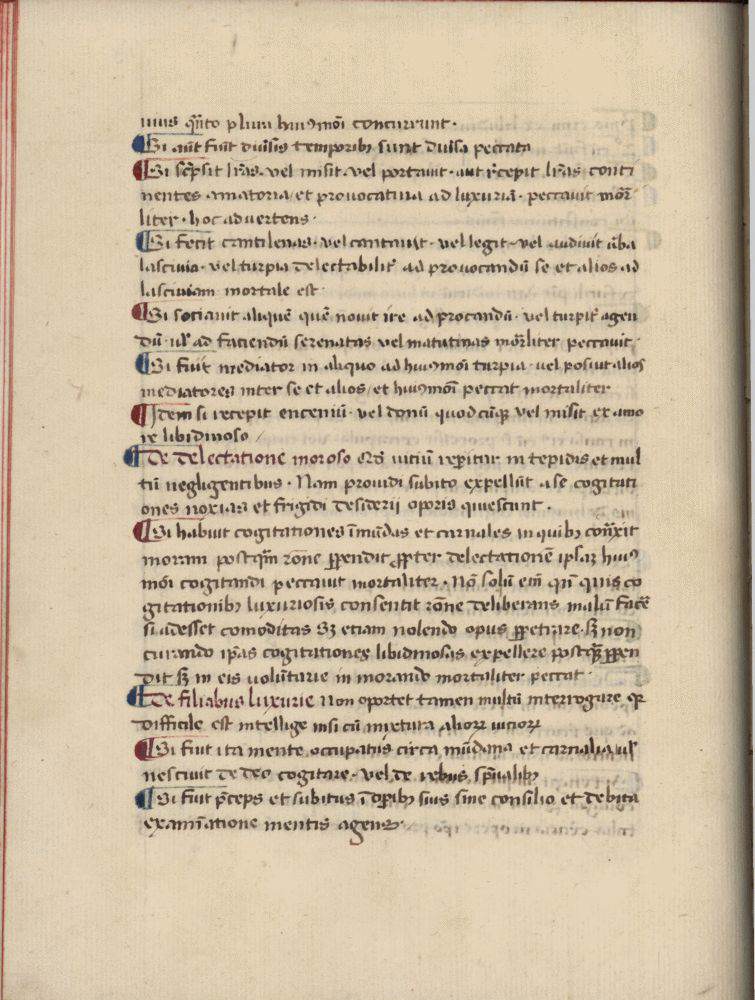 mius qn̄to plura huiꝰmōi concurrunt·
¶ Si aūt fiūt diūsis temporibꝫ sunt diūsa peccata
¶ Si sc̄psit lr̄as· vel misit· vel portauit· aut r̄cepit lr̄as conti
nentes amatoria et prouocatiua ad luxuriā· peccauit mōr
liter· hoc aduertens·
¶ Si fecit cantilenas· vel cantauit· vel legit· vel audiuit ūba
lasciuia· vel turpia delectabilit̄ ad prouocandū se et alios ad
lasciuiam mortale est·
¶ Si sociauit aliquē quē nouit ire ad procandū· vel turpit̄ agen
dū· ul̄ ad faciendū serenatas vel matutinas mōrliter peccauit·
¶ Si fuit mediator in aliquo ad huiꝰmōi turpia· uel posuit alios
mediatores inter se et alios, et huiꝰmōi peccat mortaliter
¶ Idem si recepit enceniū· vel donū quodcūqꝫ vel misit ex amo
re libidinoso /
¶ De delectatione moroso Qd̄ uitiū rep̄itur in tepidis et mul
tū negligentibus· Nam prouidi subito expellūt a se cogitati
ones noxias et frigidi desiderii op̄oris quiescunt.
¶ Si habuit cogitationes īmūdas et carnales in quibꝫ cōn̄xit
moram postqꝫ̄m rōne ꝑpendit ꝓpter delectationē ipsaꝝ huiꝰ
mōi cogitandi peccauit mortaliter· Nō solū em̄ qn̄ quis co
gitationibꝫ luxuriosis consentit rōne deliberans malum fac̄e
si adesset comoditas Sꝫ etiam nolendo opus ꝑpetrare· sꝫ non
curando ip̄as cogitationes libidinosas expellere postqꝫ̄ ꝑpen
dit sꝫ in eis volūtarie in morando mortaliter peccat·
¶ De filiabus luxurie Non oportet tamen multū interrogare qꝛ
difficile est intellige nisi cū mixtura alioꝝ uicioꝝ
¶ Si fuit ita mente occupatus circa mūdana et carnalia ul̄
nesciuit de deo cogitare· vel de rebus sp̄ualibꝫ
¶ Si fuit p̄ceps et subitus ī op̄ibꝫ suis sine consilio et debita
examīatione mentis agens·